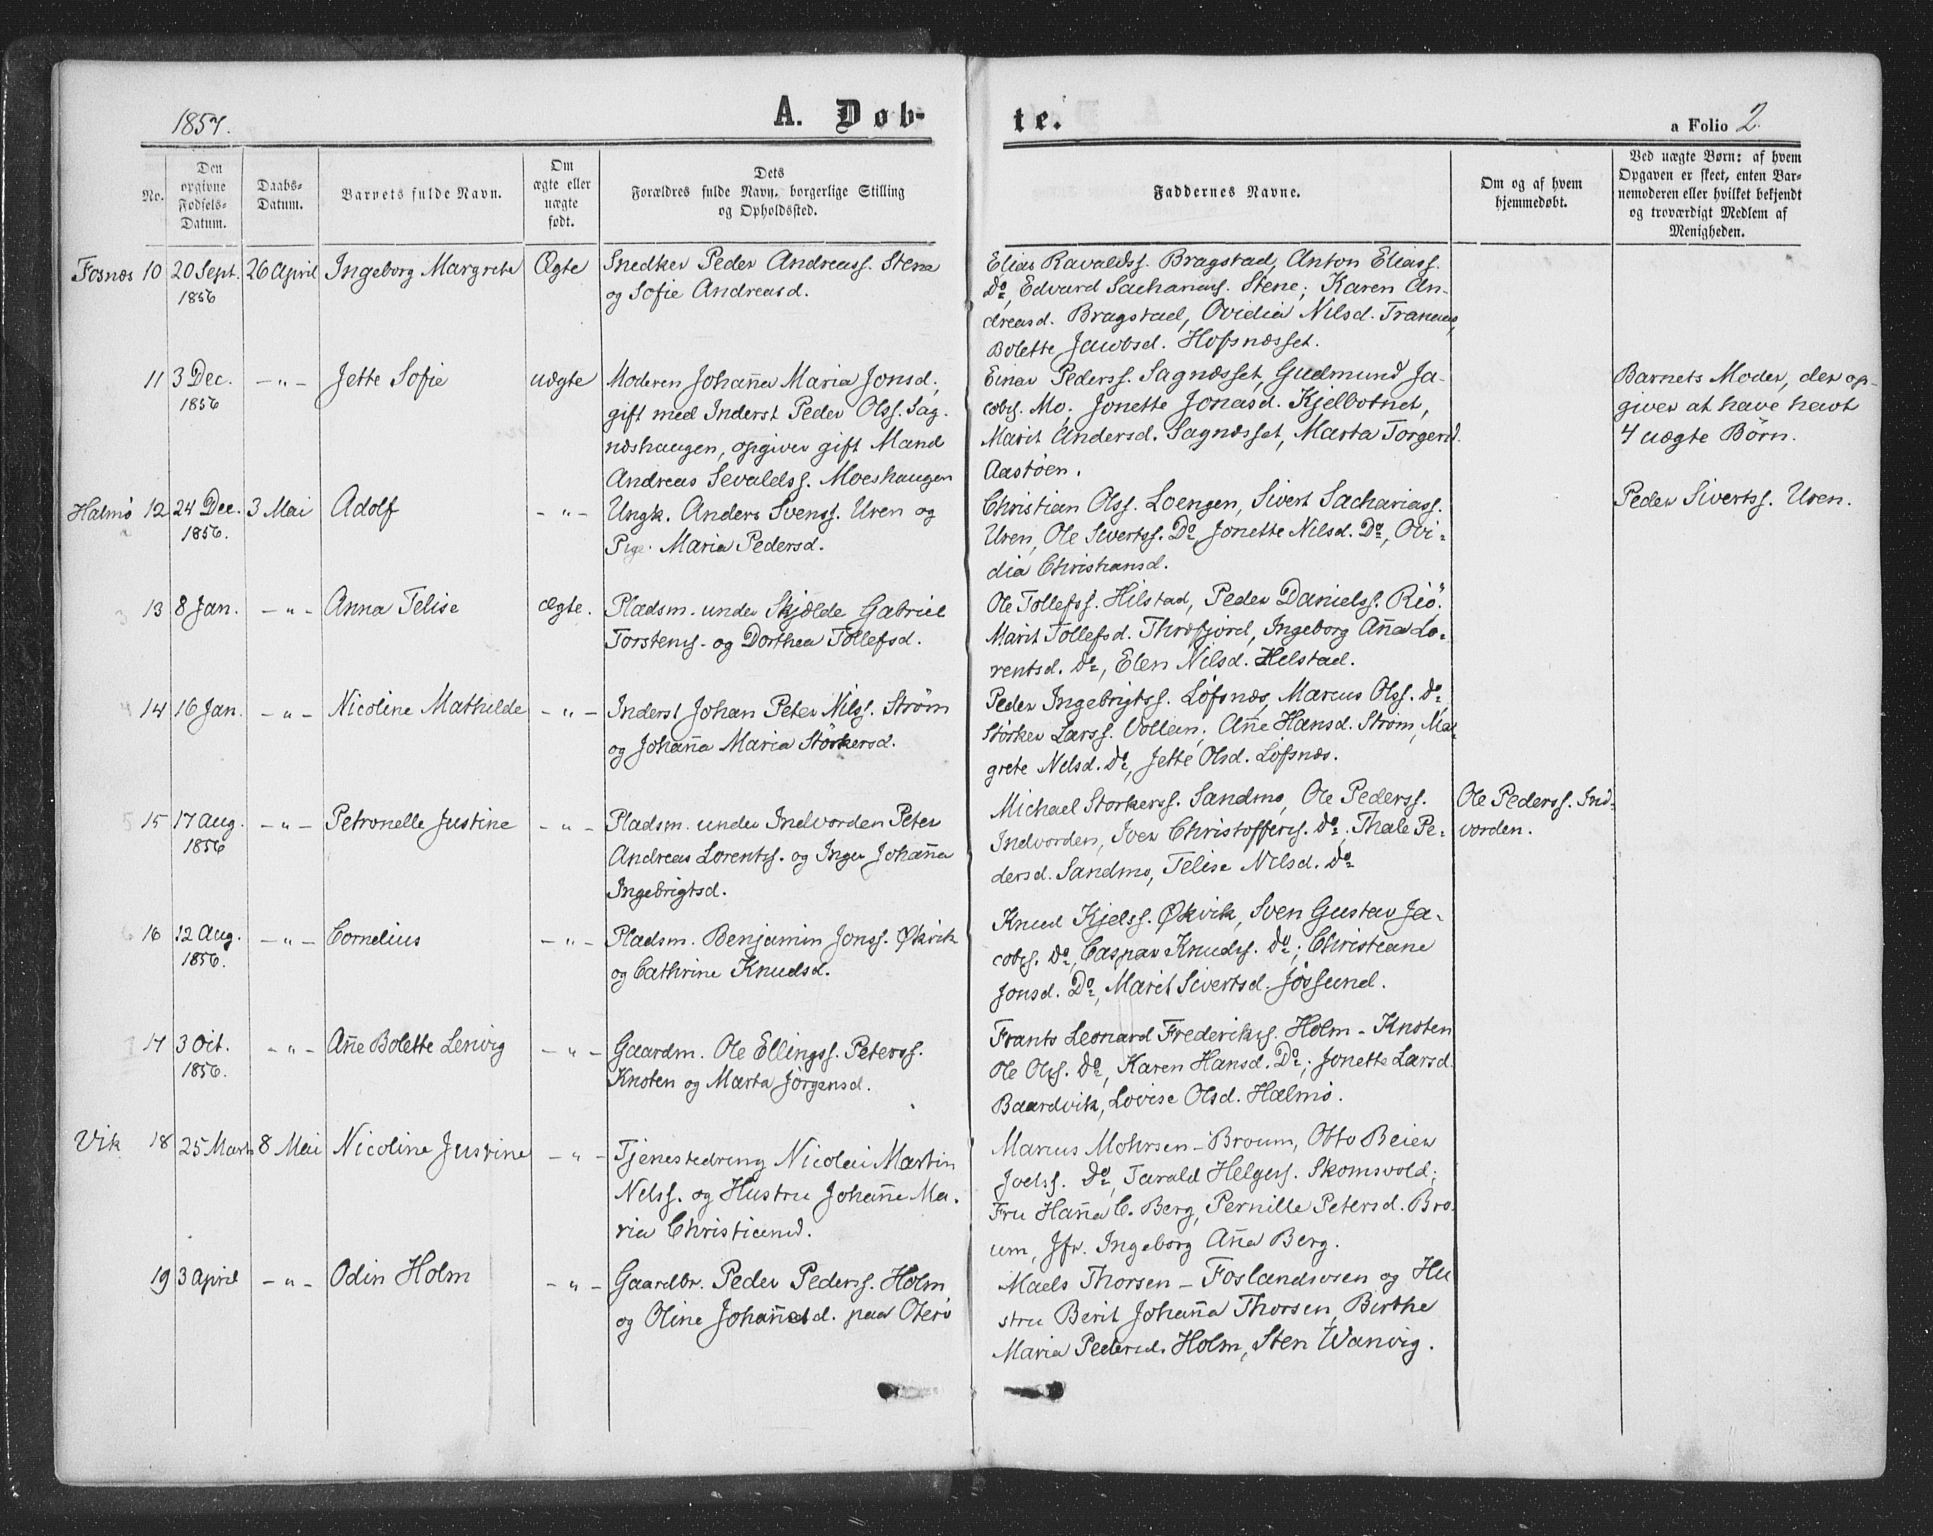 1857.
A. Døb-
te.
a Folio 2.
No.
Den opgivne Fødsels-Datum.
Daabs-Datum.
Barnets fulde Navn.
Om ægte eller uægte født.
Dets
Forældres fulde Navn, borgerlige Stilling
og Opholdssted.
Faddernes Navne.
Om og af hvem
hjemmedøbt.
Ved uægte Børn: af hvem
Opgaven er skeet, enten Bar-
nemoderen eller hvilket bekjendt
og troværdigt Medlem af
Menigheden.
Fosnæs 10 20 Sept. 26 April Ingeborg Margrete Ægte Snedker Peder Andreass. Stene
1856 og Sofie Andreasd.
Elias Ravaldss. Bragstad, Anton Eliass.
Do, Edvard Sacharias. Stene; Karen An-
dreasd. Bragstad, Ovidia Nilsd. Tranæus,
Bolette Jacobsd. Hofsnæsset.
11 3 Dec. -"- Jette Sofie uægte Moderen Johaña Maria Jonsd.,
1856 gift med Inderst Peder Olss. Sag-
næshaugen, opgiver gift Mand
Andreas Sevaldss. Moeshaugen
Einar Pederss. Sagnæsset, Gudmund Ja-
cobs. Mo; Jonette Jonasd. Kjelbotnet,
Marit Andersd. Sagnæsset, Marta Torgersd.
Aastøen.
Barnets Moder, der op-
giver at have havt
4 uægte Børn.
Halmø 12 24 Dec. 3 Mai Adolf -"- Ungk. Anders Svenss. Uren og
1856. Pige Maria Pedersd.
Christian Olss. Loengen, Sivert Sachariass.
Uren, Ole Sivertss. Do, Jonette Nilsd. Do, Ovi-
dia Christiansd.
Peder Sivertss. Uren.
13 8 Jan. -"- Anna Telise ægte. Pladsm. under Skjælde Gabriel
Torstens. og Dorthea Tollefsd.
Ole Tollefss. Hilstad, Peder Danielss. Riö.
Marit Tollefsd. Thræfjord, Ingeborg Aña Lo-
rentsd. Do, Elen Nilsd. Helstad.
14 16 Jan. -"- Nicoline Mathilde -"- Inderst Johan Peter Nilss. Strøm
og Johaña Maria Störkersd.
Peder Ingebrigtss. Løfsnæs, Marcus Olss. Do,
Störker Larss. Vollein; Añe Hansd. Strøm, Mar-
grete Nelsd. Do, Jette Olsd. Löfsnæs.
15 17 Aug. -"- Petronelle Justine -"- Pladsm. under Indvorden Peter
1856 Andreas Lorentss. og Inger Johaña
Ingebrigtsd.
Michael Storkerss. Sandmo, Ole Pederss.
Indvorden, Iver Christoffers. Do; Thale Pe-
dersd. Sandmo, Telise Nilsd. Do
Ole Pederss. Ind-
vorden.
16 12 Aug. -"- Cornelius -"- Pladsm. Benjamin Jonss. Økvik
1856. og Cathrine Knudsd.
Knud Kjelss. Økvik, Sven Gustav Ja-
cobs. Do, Caspar Knudss. Do; Christiane
Jonsd. Do, Marit Sivertsd. Jøssund.
17 3 Oct. -"- Añe Bolette Lervig -"- Gaardm. Ole Ellingss. Peterss.
1856. Knoten og Marta Jørgensd.
Frants Leonard Frederiks. Holm - Knoten
Ole Olss. Do, Karen Hansd. Do; Jonette Larsd.
Baardvik, Lovise Olsd. Halmö.
Vik 18 25 Marts 8 Mai Nicoline Justine -"- Tjenestedreng Nicolai Martin
Nelss. og Hustru Johañe Ma-
ria Christiansd.
Marcus Mohrsen - Broum, Otto Beier
Joelss. Do, Tarald Helgess. Skomsvold;
Fru Haña C. Berg, Pernille Petersd. Bro-
um, Jfr. Ingeborg Aña Berg.
19 3 April -"- Odin Holm -"- Gaardbr. Peder Pederss. Holm
og Oline Johañesd. paa Oterö
Maels Thorsen - Foslandsosen og Hu
stru Berit Johaña Thorsen, Birthe
Maria Pedersd. Holm, Sten Wanvig.